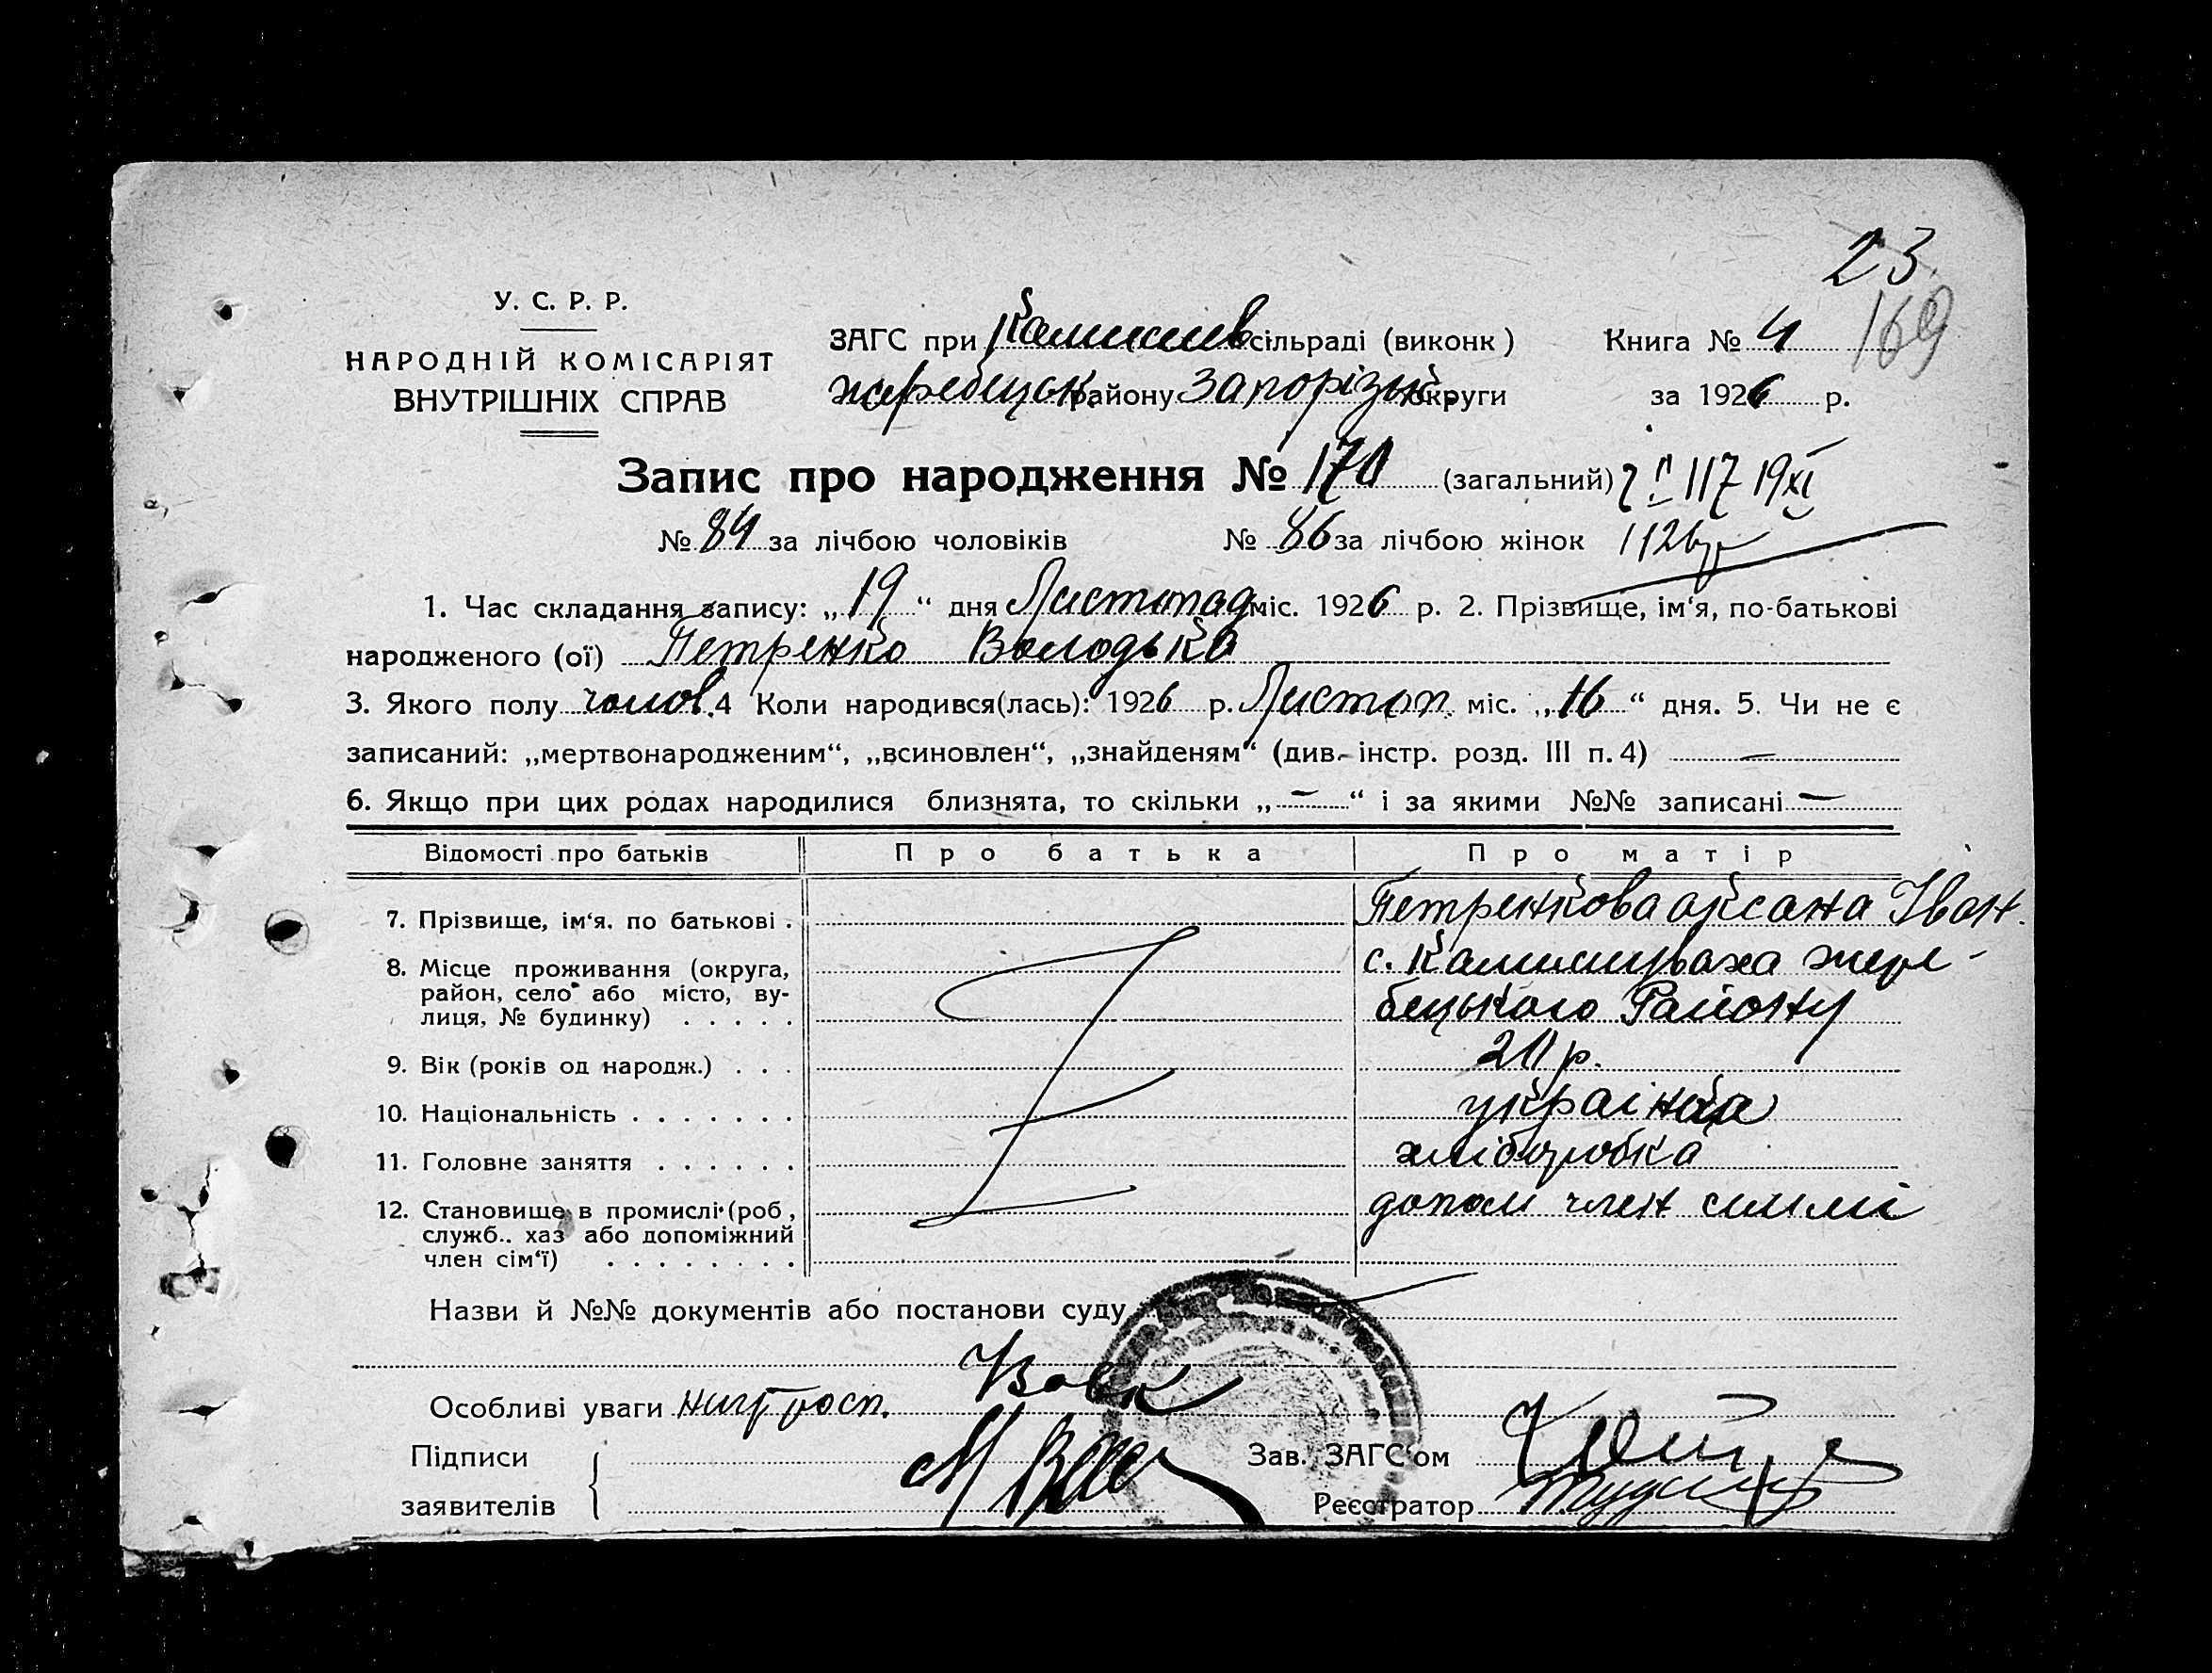 23
169
У. С. Р. Р.
НАРОДНІЙ КОМІСАРІЯТ
ВНУТРІШНІХ СПРАВ
ЗАГС при Камишев сільраді (виконк)
жеребецьк. району Запорізьк. округи
Книга № 4
за 1926 р.
Запис про народження № 170 (загальний) 117 19 XI
№ 84 за лічбою чоловіків № 86 за лічбою жінок
1. Час складання запису: „19“ дня Листопад міс. 1926 р. 2. Прізвище, ім‘я, по-батькові
народженого (ої) Петренко Володька
3. Якого полу чолов. 4 Коли народився(лась): 1926 р. Листоп. міс. „16“ дня. 5. Чи не є
записаний: „мертвонародженим“, „всиновлен“, „знайденям“ (див. інстр. розд. III п. 4) —
6. Якщо при цих родах народилися близнята, то скільки „—“ і за якими №№ записані —
Відомості про батьків Про батька Про матір
7. Прізвище, ім‘я. по батькові . Петренкова оксана Іван.
8. Місце проживання (округа, с. Камишуваха жере-
район, село або місто, ву- бецького Району
лиця, № будинку) . . . . .
9. Вік (років од народж.) . . . 20 р.
10. Національність . . . . . . . українка
11. Головне заняття . . . . . . хліборобка
12. Становище в промислі (роб, допом член сіммі
служб.. хаз або допоміжний
член сім‘ї) . . . . . . . .
Назви й №№ документів або постанови суду
Особливі уваги
Підписи
заявителів
Зав. ЗАГС‘ом
Реєстратор